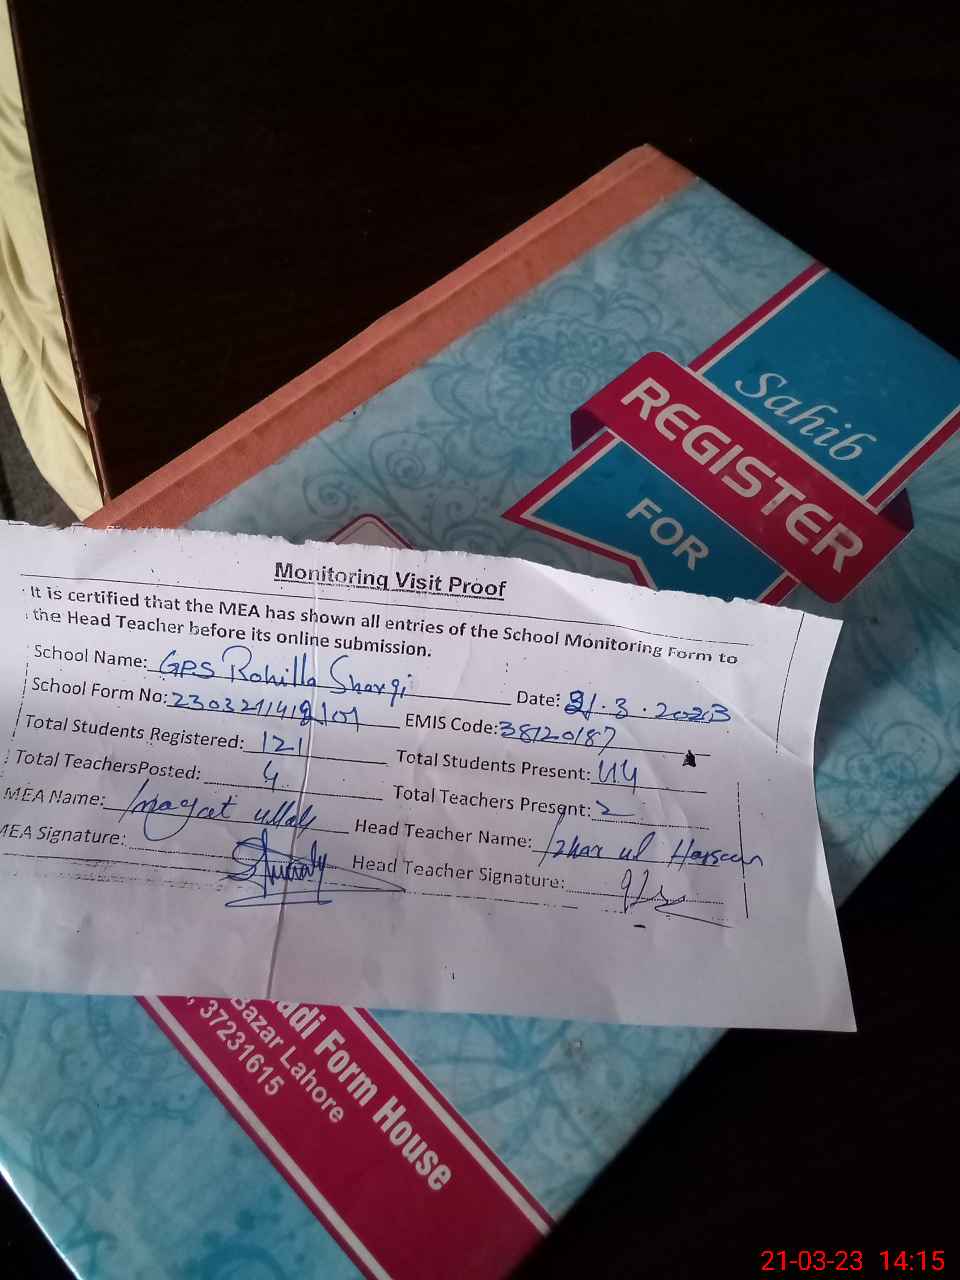 Sahib
REGISTER
FOR
Monitoring Visit Proof
It is certified that the MEA has shown all entries of the School Monitoring Form to
the Head Teacher before its online submission.
School Name: GPS Rohilla Sharqi Date: 21.3.2023
School Form No: EMIS Code: 38120187
Total Students Registered: 121 Total Students Present: 44
Total TeachersPosted: 4 Total Teachers Present: 2
MEA Name: Inayat ullah Head Teacher Name: Izhar ul Hassan
MEA Signature: Head Teacher Signature:
adi Form House
Bazar Lahore
, 37231615
21-03-23 14:15